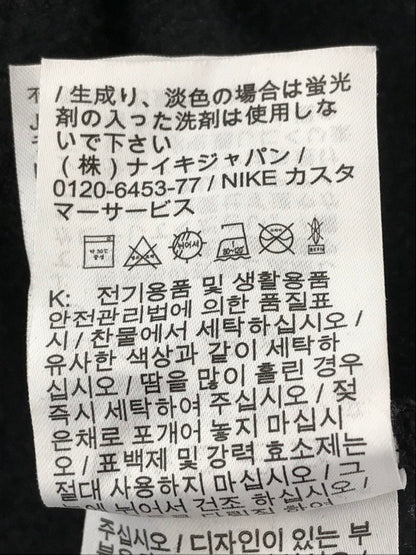 / 生成り、淡色の場合は蛍光
剤の入った洗剤は使用しな
いで下さい
(株)ナイキジャパン /
0120-6453-77 / NIKE カスタ
マーサービス
약 30℃
중성
뉘어서
80-120
K: 전기용품 및 생활용품
안전관리법에 의한 품질표
시 / 찬물에서 세탁하십시오 /
유사한 색상과 같이 세탁하
십시오 / 땀을 많이 흘린 경우
즉시 세탁하여 주십시오 / 젖
은채로 포개어 놓지 마십시
오 / 표백제 및 강력 효소제는
절대 사용하지 마십시오 / 그
늘에 뉘어서 건조 하십시오
주십시오 / 디자인이 있는 부